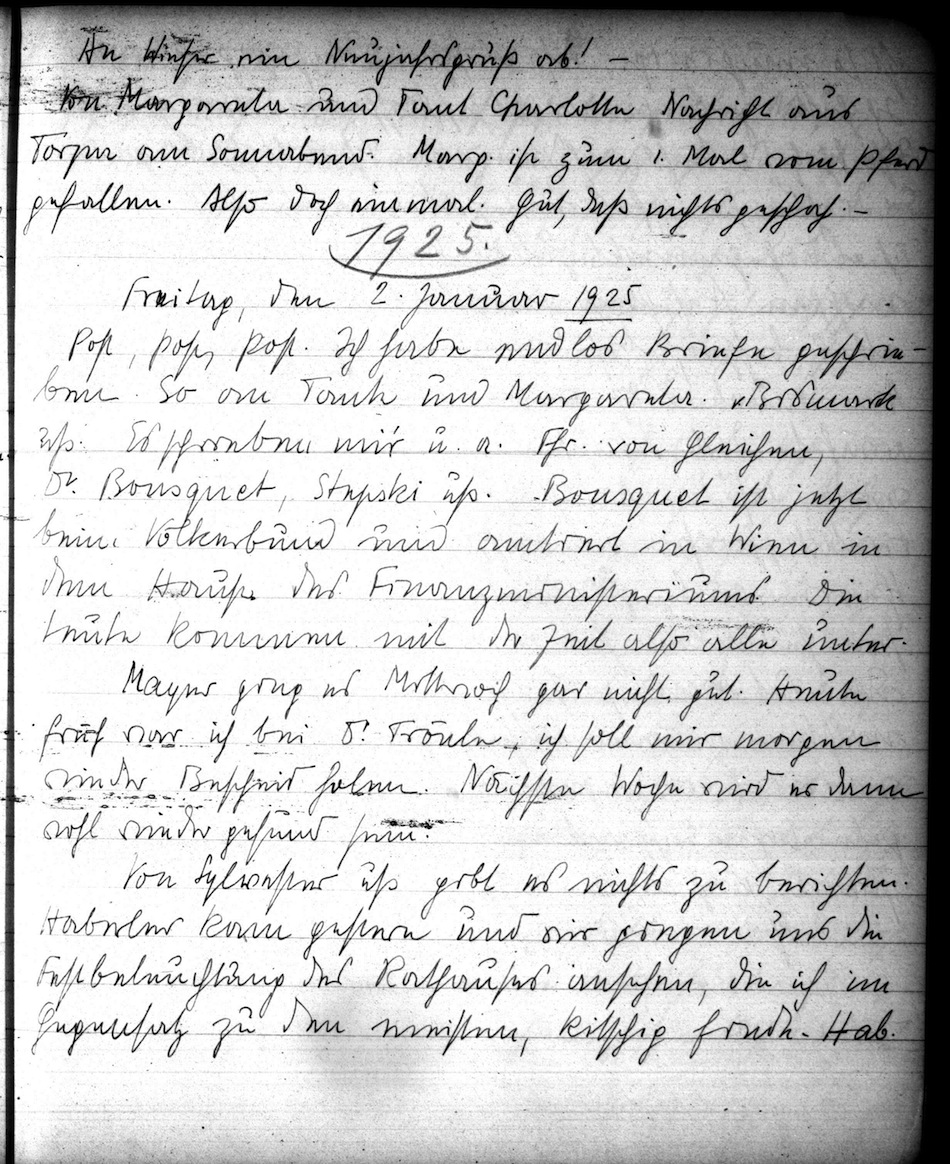 An Winter ein Neujahrsgruß ab! –
Von Margarete und Tant Charlotte Nachricht aus
Torgau am Sonnabend. Marg. ist zum 1. Mal vom Pferd
gefallen. Also doch einmal. Gut, daß nichts geschah. –
1925.
Freitag, den 2. Januar 1925
Post, Post, Post. Ich habe endlos Briefe geschrie-
ben. So an Tante und Margarete. Bismarck
usf. Es schrieben mir u. a. Fhr. von Gleichen,
Dr. Bousquet, Stepski usf. Bousquet ist jetzt
beim Völkerbund und amtiert in Wien in
dem Hause des Finanzministeriums. Die
Leute kommen mit der Zeit also alle unter.
Mayer ging es Mittwoch gar nicht gut. Heute
früh war ich bei Dr. ich soll mir morgen
wieder Bescheid holen. Nächste Woche wird er dann
wohl wieder gesund sein.
Von Sylvester usf gibt es nichts zu berichten.
Haberler kam gestern und wir gingen uns die
Festbeleuchtung des Rathauses ansehen, die ich im
Gegensatz zu den meisten, kitschig finde. Hab.